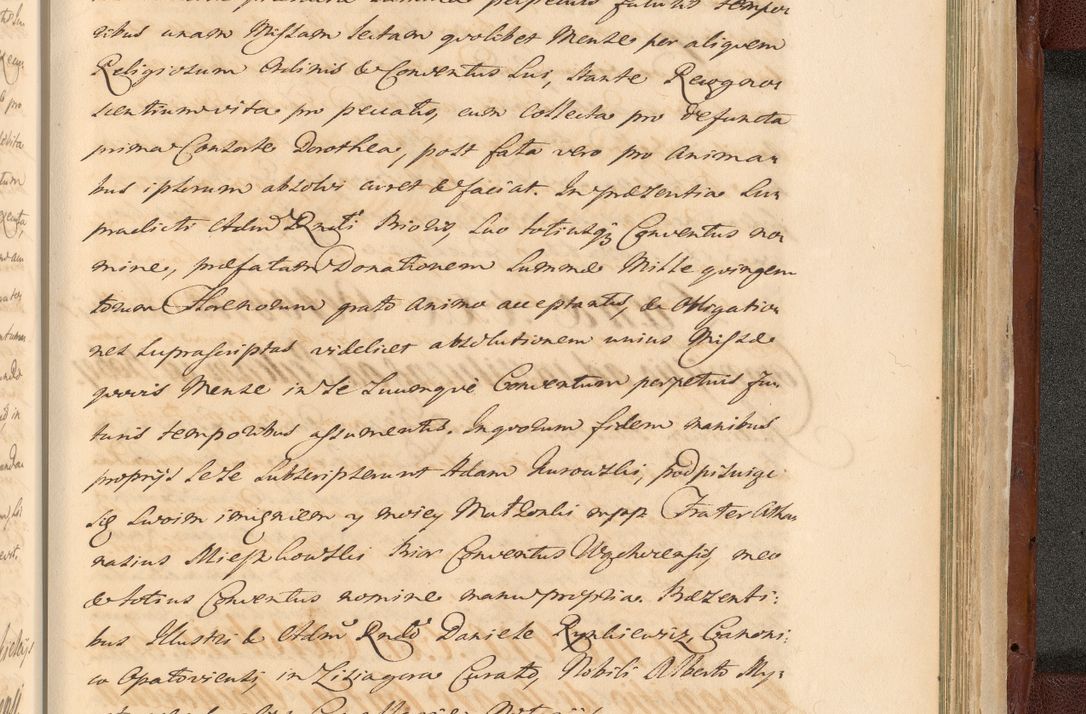 ribus unam Missam lectam quolibet Mense per aliquem
Religiosum Ordinis & Conventus Sui, stante Recognos
centium vita pro peccatis, cum Collecta pro defuncta
prima Consorte Dorothea, post fata vero pro anima-
bus ipsorum absolvi curet & faciat. In præsentia Su-
pradicti Adm Rndi Prioris, suo totiusq Conventus no-
mine, præfatam Donationem Summæ Mille quingen-
torum Florenorum grato animo acceptantis, & obligatio-
nes suprascriptas videlicet absolutionem unius Missæ
quovis Mense in se suumque Conventum perpetuis fu-
turis temporibus assumentis. In quorum fidem manibus
proprijs sese subscripserunt Adam Kurowski, podpisuię
się swoim imięniem y moiey Małżonki mpp Frater Atha
nasius Mieszkowski Prior Conventus Wąchocensis, meo
& totius Conventus nomine manu propria. Præsenti:
bus Illustri & Adm Rndo Daniele Rynkiewicz Canoni:
co Opatoviensi, in Curato, Nobili Alberto My-